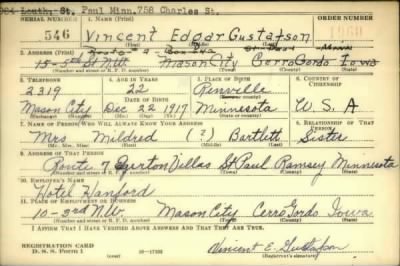 984 Louth, St. Paul Minn. 758 Charles St.
SERIAL NUMBER 1. NAME (Print) ORDER NUMBER
546 Vincent Edgar Gustafson
2. ADDRESS (Print)
15-5th St NW Mason City Cerro Gordo Iowa
(Number and street or R. F. D. number) (Town) (County) (State)
3. TELEPHONE 4. AGE IN YEARS 5. PLACE OF BIRTH 6. COUNTRY OF CITIZENSHIP
2319 22 Renville
DATE OF BIRTH
Mason City Dec 22 1917 Minnesota U.S.A
7. NAME OF PERSON WHO WILL ALWAYS KNOW YOUR ADDRESS 8. RELATIONSHIP OF THAT PERSON
Mrs Mildred (?) Bartlett Sister
9. ADDRESS OF THAT PERSON
Route 7 Villas St Paul Ramsey Minnesota
(Number and street or R. F. D. number) (Town) (County) (State)
10. EMPLOYER'S NAME
Hotel Hanford
11. PLACE OF EMPLOYMENT OR BUSINESS
10-3rd NW Mason City Cerro Gordo Iowa
(Number and street or R. F. D. number) (Town) (County) (State)
I AFFIRM THAT I HAVE VERIFIED ABOVE ANSWERS AND THAT THEY ARE TRUE.
REGISTRATION CARD
D. S. S. FORM 1 (over) Vincent E. Gustafson
(Registrant's signature)